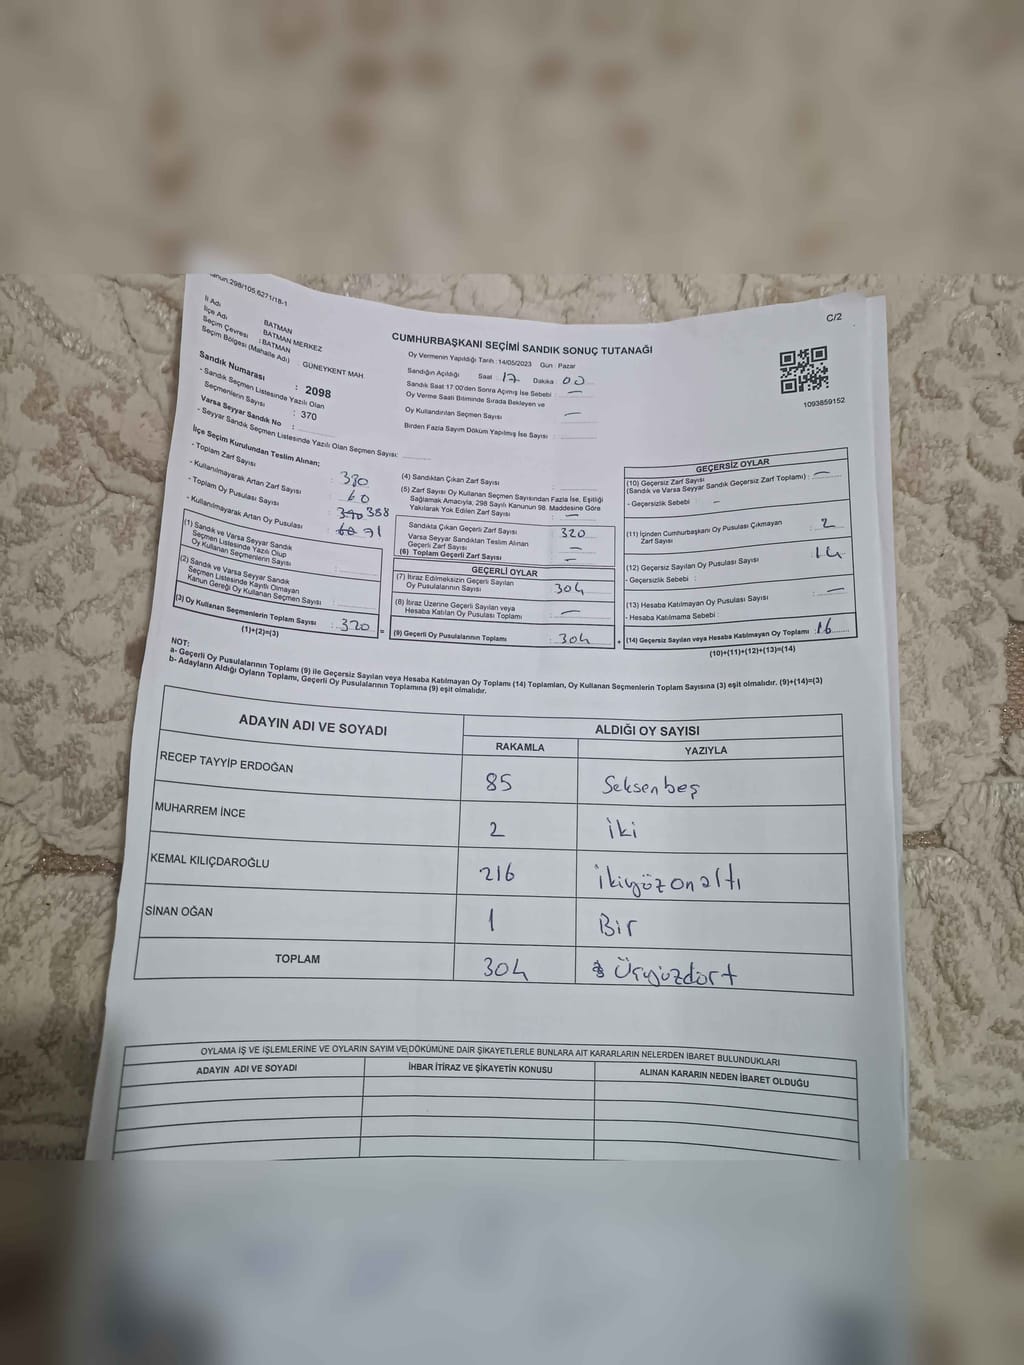 298/105.6271/18-1
C/2
İl Adı : BATMAN
İlçe Adı : BATMAN MERKEZ
Seçim Çevresi : BATMAN
Seçim Bölgesi (Mahalle Adı) : GÜNEYKENT MAH.
CUMHURBAŞKANI SEÇİMİ SANDIK SONUÇ TUTANAĞI
Oy Vermenin Yapıldığı Tarih : 14/05/2023 Gün : Pazar
Sandığın Açıldığı Saat : 17 Dakika : 00
Sandık Saat 17:00'den Sonra Açılmış İse Sebebi : —
Oy Verme Saati Bitiminde Sırada Bekleyen ve
Oy Kullandırılan Seçmen Sayısı —
Birden Fazla Sayım Döküm Yapılmış İse Sayısı :
1093859152
Sandık Numarası : 2098
- Sandık Seçmen Listesinde Yazılı Olan
Seçmenlerin Sayısı : 370
Varsa Seyyar Sandık No :
- Seyyar Sandık Seçmen Listesinde Yazılı Olan Seçmen Sayısı:
İlçe Seçim Kurulundan Teslim Alınan;
- Toplam Zarf Sayısı : 380
- Kullanılmayarak Artan Zarf Sayısı : 60
- Toplam Oy Pusulası Sayısı : 388
- Kullanılmayarak Artan Oy Pusulası : 71
(1) Sandık ve Varsa Seyyar Sandık
Seçmen Listesinde Yazılı Olup
Oy Kullanan Seçmenlerin Sayısı :
(2) Sandık ve Varsa Seyyar Sandık
Seçmen Listesinde Kayıtlı Olmayan
Kanun Gereği Oy Kullanan Seçmen Sayısı :
(3) Oy Kullanan Seçmenlerin Toplam Sayısı : 320
(1)+(2)=(3)
(4) Sandıktan Çıkan Zarf Sayısı :
(5) Zarf Sayısı Oy Kullanan Seçmen Sayısından Fazla İse, Eşitliği
Sağlamak Amacıyla; 298 Sayılı Kanunun 98. Maddesine Göre
Yakılarak Yok Edilen Zarf Sayısı : —
Sandıkta Çıkan Geçerli Zarf Sayısı : 320
Varsa Seyyar Sandıktan Teslim Alınan
Geçerli Zarf Sayısı : —
(6) Toplam Geçerli Zarf Sayısı : —
GEÇERLİ OYLAR
(7) İtiraz Edilmeksizin Geçerli Sayılan
Oy Pusulalarının Sayısı : 304
(8) İtiraz Üzerine Geçerli Sayılan veya
Hesaba Katılan Oy Pusulası Toplamı : —
= (9) Geçerli Oy Pusulalarının Toplamı : 304 +
GEÇERSİZ OYLAR
(10) Geçersiz Zarf Sayısı
(Sandık ve Varsa Seyyar Sandık Geçersiz Zarf Toplamı) : —
- Geçersizlik Sebebi : —
(11) İçinden Cumhurbaşkanı Oy Pusulası Çıkmayan
Zarf Sayısı : 2
(12) Geçersiz Sayılan Oy Pusulası Sayısı : 14
- Geçersizlik Sebebi :
(13) Hesaba Katılmayan Oy Pusulası Sayısı : —
- Hesaba Katılmama Sebebi :
(14) Geçersiz Sayılan veya Hesaba Katılmayan Oy Toplamı : 16
(10)+(11)+(12)+(13)=(14)
NOT:
a- Geçerli Oy Pusulalarının Toplamı (9) ile Geçersiz Sayılan veya Hesaba Katılmayan Oy Toplamı (14) Toplamları, Oy Kullanan Seçmenlerin Toplam Sayısına (3) eşit olmalıdır. (9)+(14)=(3)
b- Adayların Aldığı Oyların Toplamı, Geçerli Oy Pusulalarının Toplamına (9) eşit olmalıdır.
ADAYIN ADI VE SOYADI ALDIĞI OY SAYISI
RAKAMLA YAZIYLA
RECEP TAYYİP ERDOĞAN 85 Seksenbeş
MUHARREM İNCE 2 İki
KEMAL KILIÇDAROĞLU 216 İkiyüzonaltı
SİNAN OĞAN 1 Bir
TOPLAM 304 Üçyüzdört
OYLAMA İŞ VE İŞLEMLERİNE VE OYLARIN SAYIM VE DÖKÜMÜNE DAİR ŞİKAYETLERLE BUNLARA AİT KARARLARIN NELERDEN İBARET BULUNDUKLARI
ADAYIN ADI VE SOYADI İHBAR İTİRAZ VE ŞİKAYETİN KONUSU ALINAN KARARIN NEDEN İBARET OLDUĞU